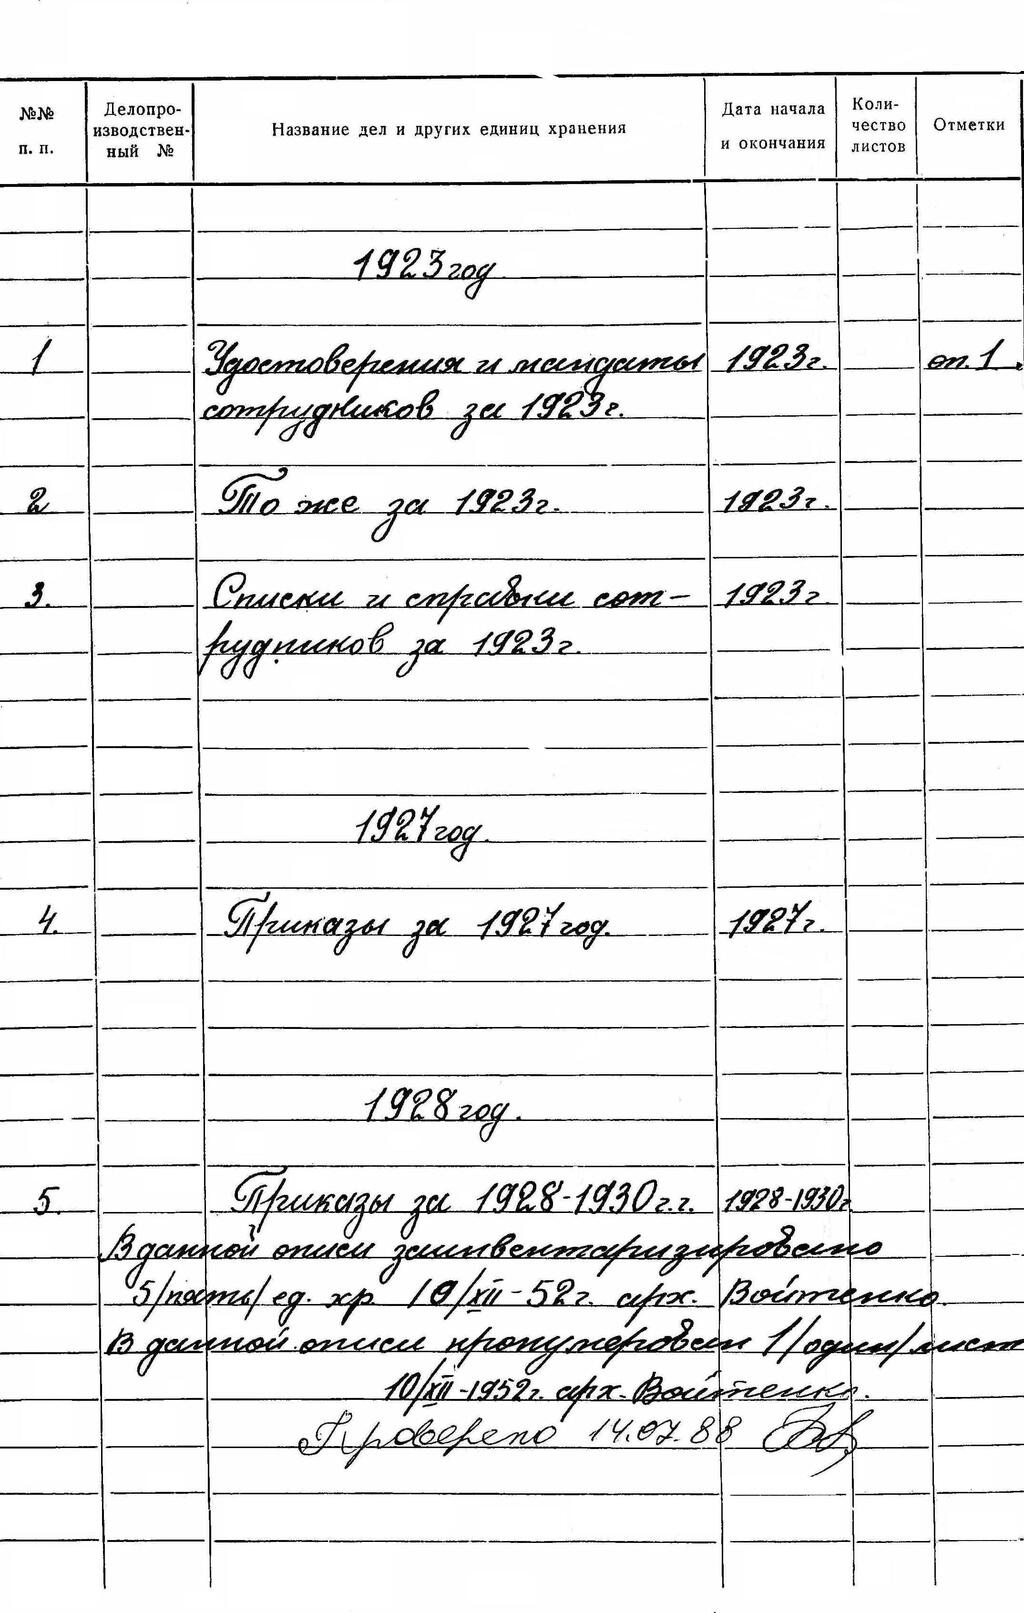 №№ п. п.
Делопро-
изводствен-
ный №
Название дел и других единиц хранения
Дата начала
и окончания
Коли-
чество
листов
Отметки
1923 год
1 Удостоверения и мандаты 1923 г. оп. 1
сотрудников за 1923 г.
2 То же за 1923 г. 1923 г.
3. Списки и справки сот- 1923 г
рудников за 1923 г.
1927 год.
4. Приказы за 1927 год. 1927 г.
1928 год.
5. Приказы за 1928-1930 г.г. 1928-1930 г
В данной описи заинвентаризировано
5/пять/ ед. хр. 10/XII-52 г. арх. Войтенко.
В данной описи пронумерован 1/один/лист
10/XII-1952 г. арх. Войтенко.
Проверено 14.07.88